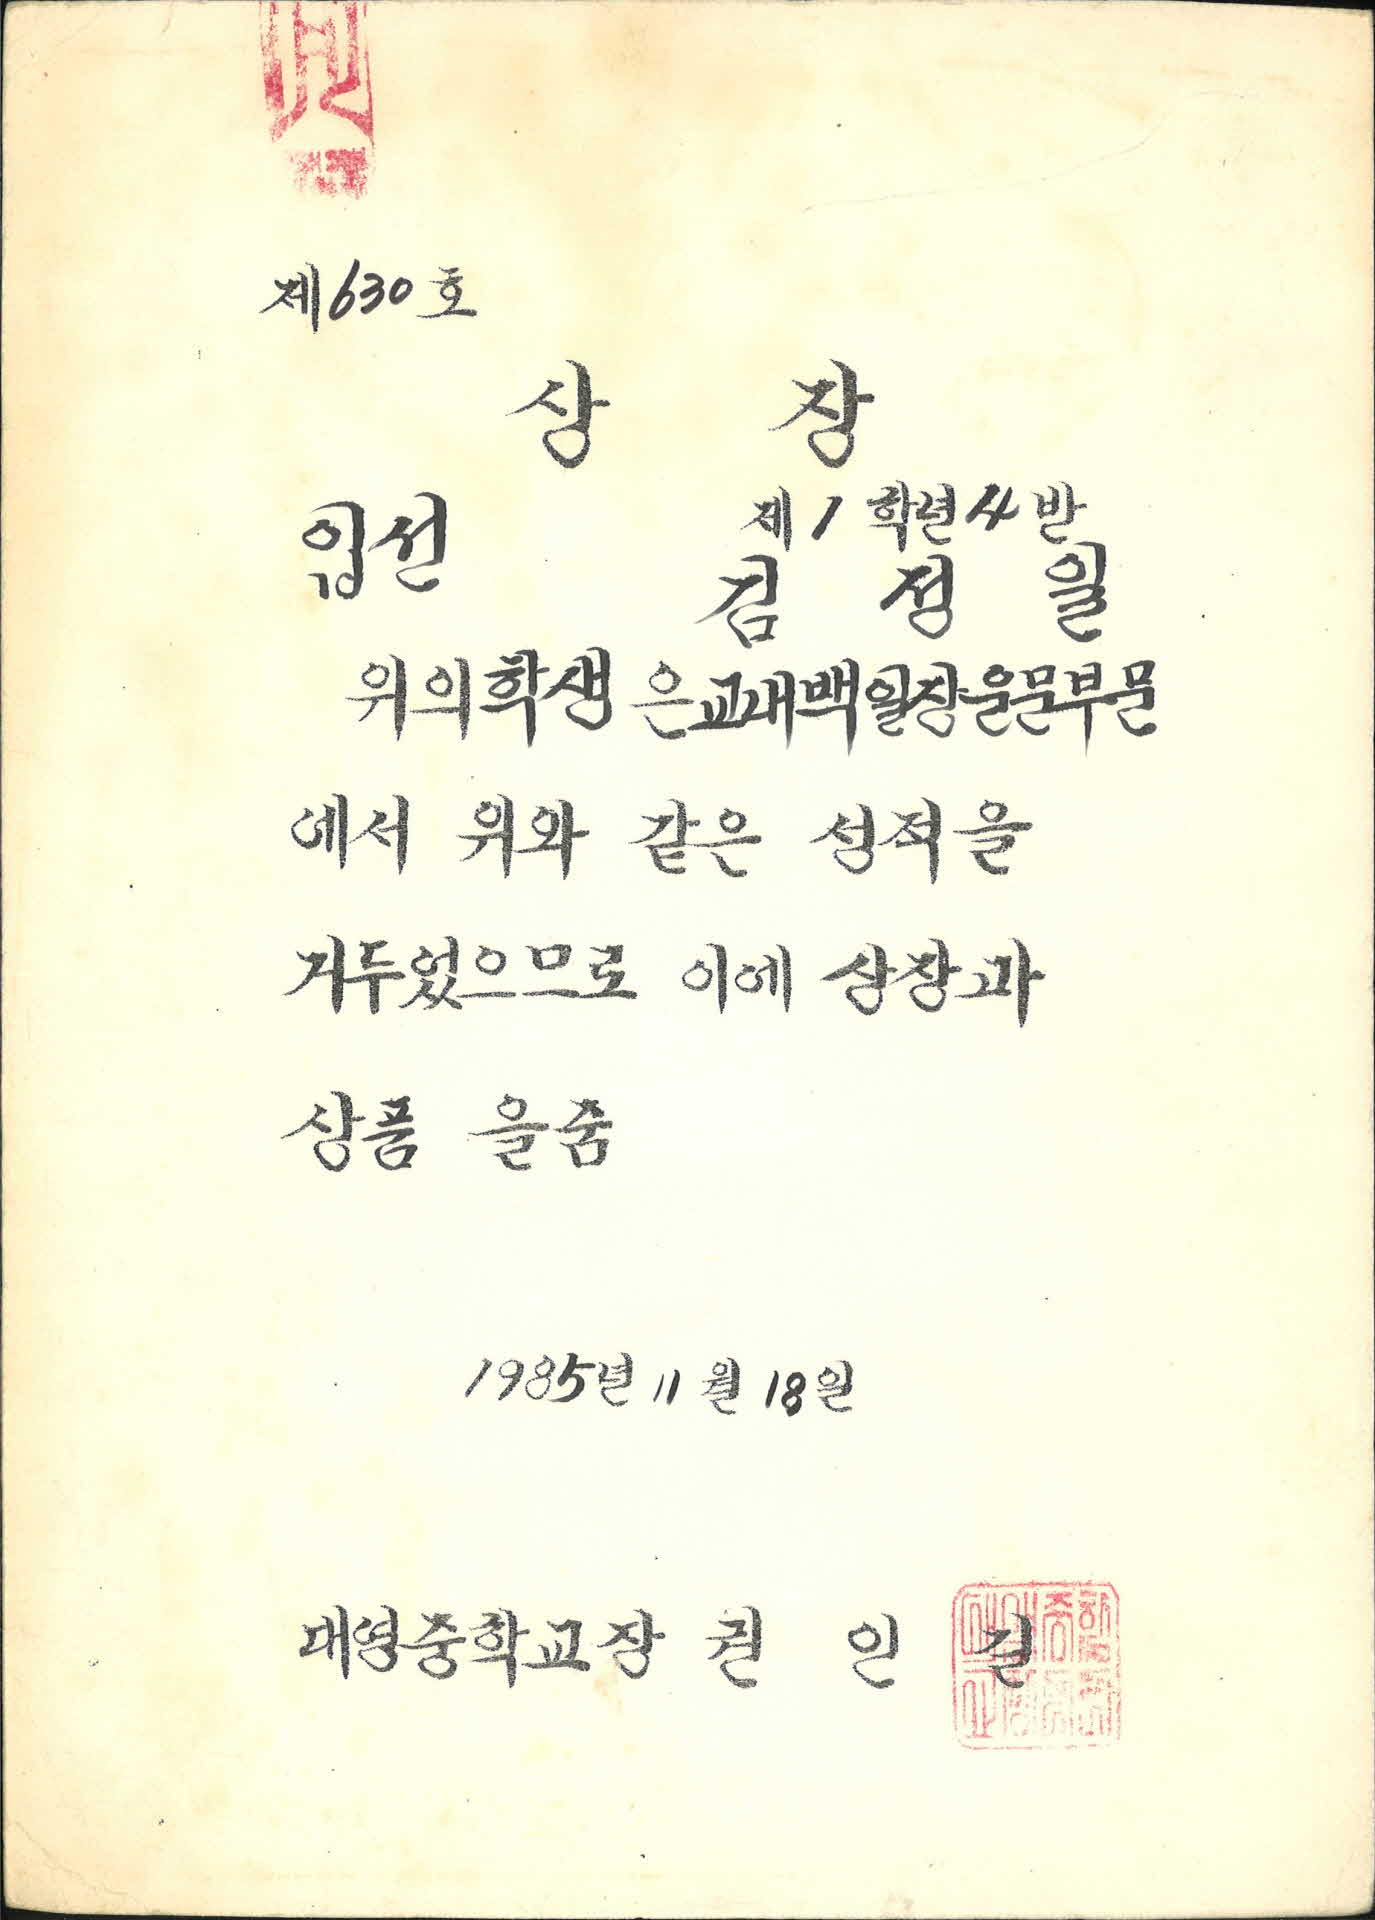 제630호
상 장
입선
제1학년4반
김 정 일
위의 학생은 교내백일장운문부문
에서 위와 같은 성적을
거두었으므로 이에 상장과
상품 을줌
1985년 11월 18일
대영중학교장 권 인 걸